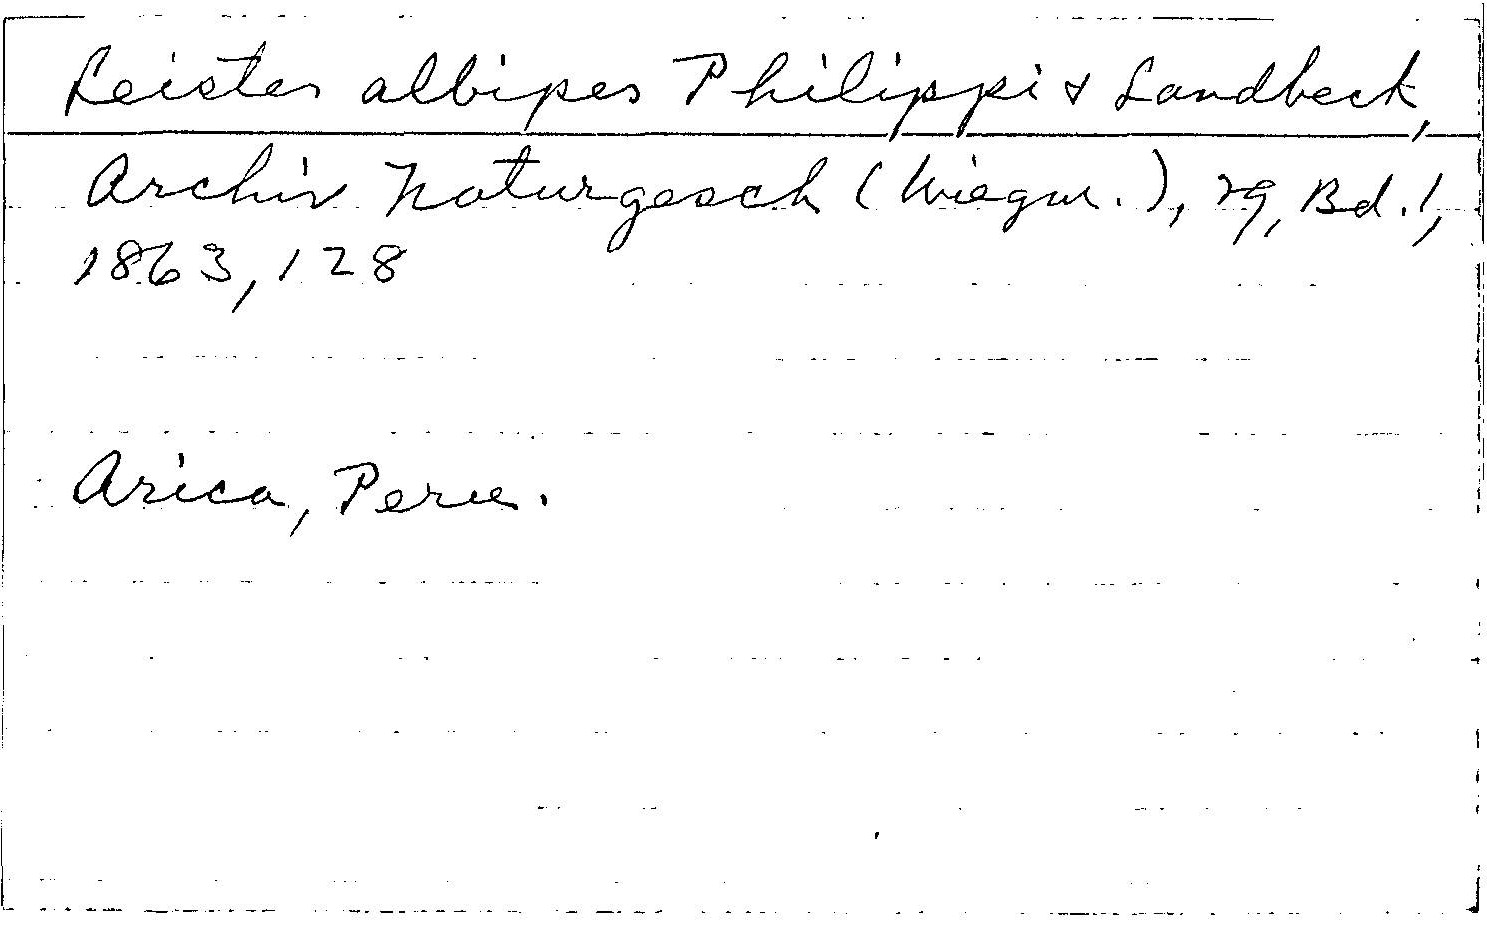 Leistes albipes Philippi & Landbeck,
Archiv Naturgesch (Wiegm.), 29, Bd. 1,
1863, 128
Arica, Peru.